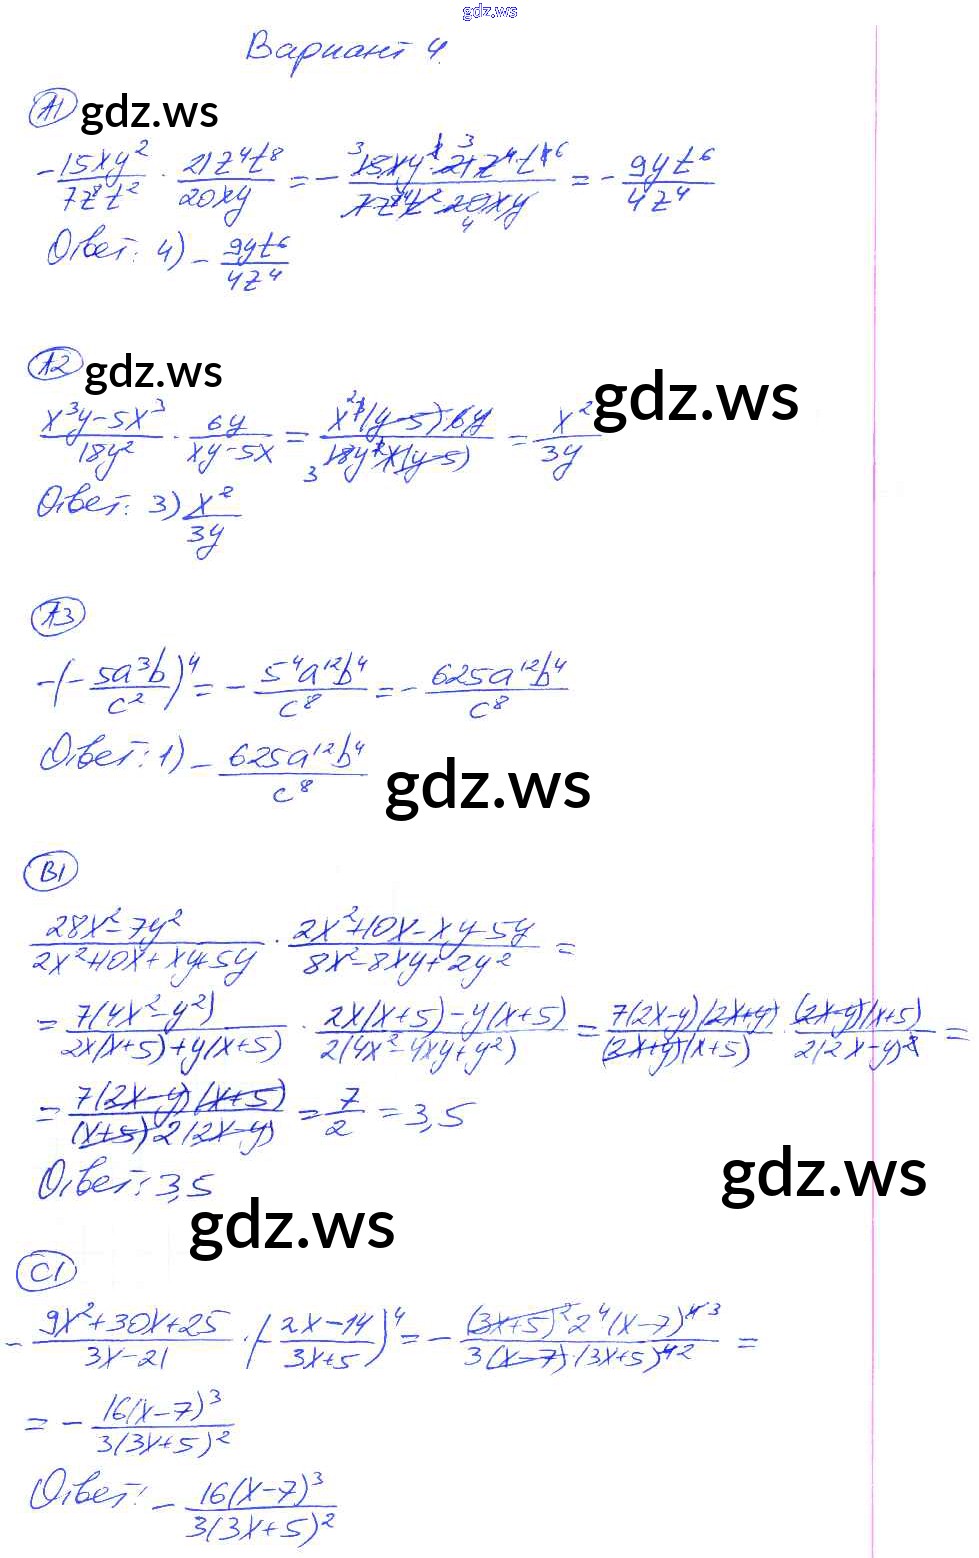 gdz.ws
Вариант 4.
A1 gdz.ws
-\frac{15xy^2}{7z^8t^2} · \frac{21z^4t^8}{20xy} = -\frac{15xy^2·21z^4t^8}{7z^8t^2·20xy} = -\frac{9yt^6}{4z^4}
Ответ: 4) -\frac{9yt^6}{4z^4}
A2 gdz.ws
gdz.ws
\frac{x^3y-5x^3}{18y^2} · \frac{6y}{xy-5x} = \frac{x^3(y-5)·6y}{18y^2x(y-5)} = \frac{x^2}{3y}
Ответ: 3) \frac{x^2}{3y}
A3
-(-\frac{5a^3b}{c^2})^4 = -\frac{5^4a^{12}b^4}{c^8} = -\frac{625a^{12}b^4}{c^8}
Ответ: 1) -\frac{625a^{12}b^4}{c^8}
gdz.ws
B1
\frac{28x^2-7y^2}{2x^2+10x+xy+5y} · \frac{2x^2+10x-xy-5y}{8x^2-8xy+2y^2} =
= \frac{7(4x^2-y^2)}{2x(x+5)+y(x+5)} · \frac{2x(x+5)-y(x+5)}{2(4x^2-4xy+y^2)} = \frac{7(2x-y)(2x+y)}{(2x+y)(x+5)} · \frac{(2x-y)(x+5)}{2(2x-y)^2} =
= \frac{7(2x-y)(x+5)}{(x+5)2(2x-y)} = \frac{7}{2} = 3,5
Ответ: 3,5
gdz.ws
gdz.ws
C1
-\frac{9x^2+30x+25}{3x-21} · (-\frac{2x-14}{3x+5})^4 = -\frac{(3x+5)^2 2^4(x-7)^4}{3(x-7)·(3x+5)^4} =
= -\frac{16(x-7)^3}{3(3x+5)^2}
Ответ: -\frac{16(x-7)^3}{3(3x+5)^2}